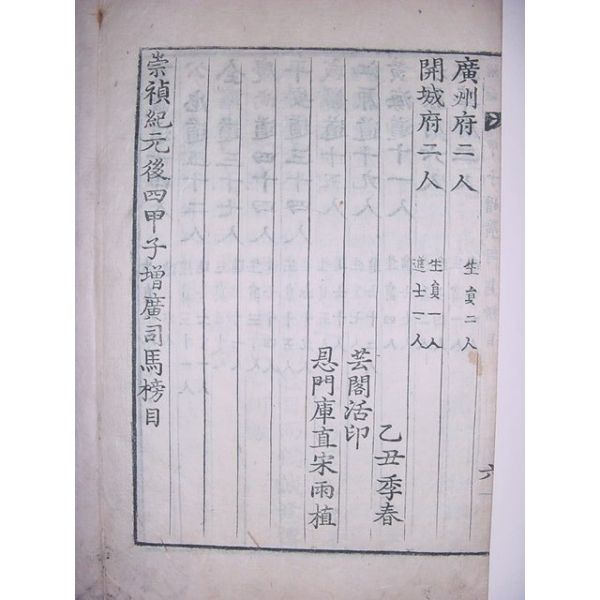 廣州府二人
生員二人
開城府二人
生員一人
進士一人
乙丑季春
芸閣活印
恩門庫直宋雨植
崇禎紀元後四甲子增廣司馬榜目